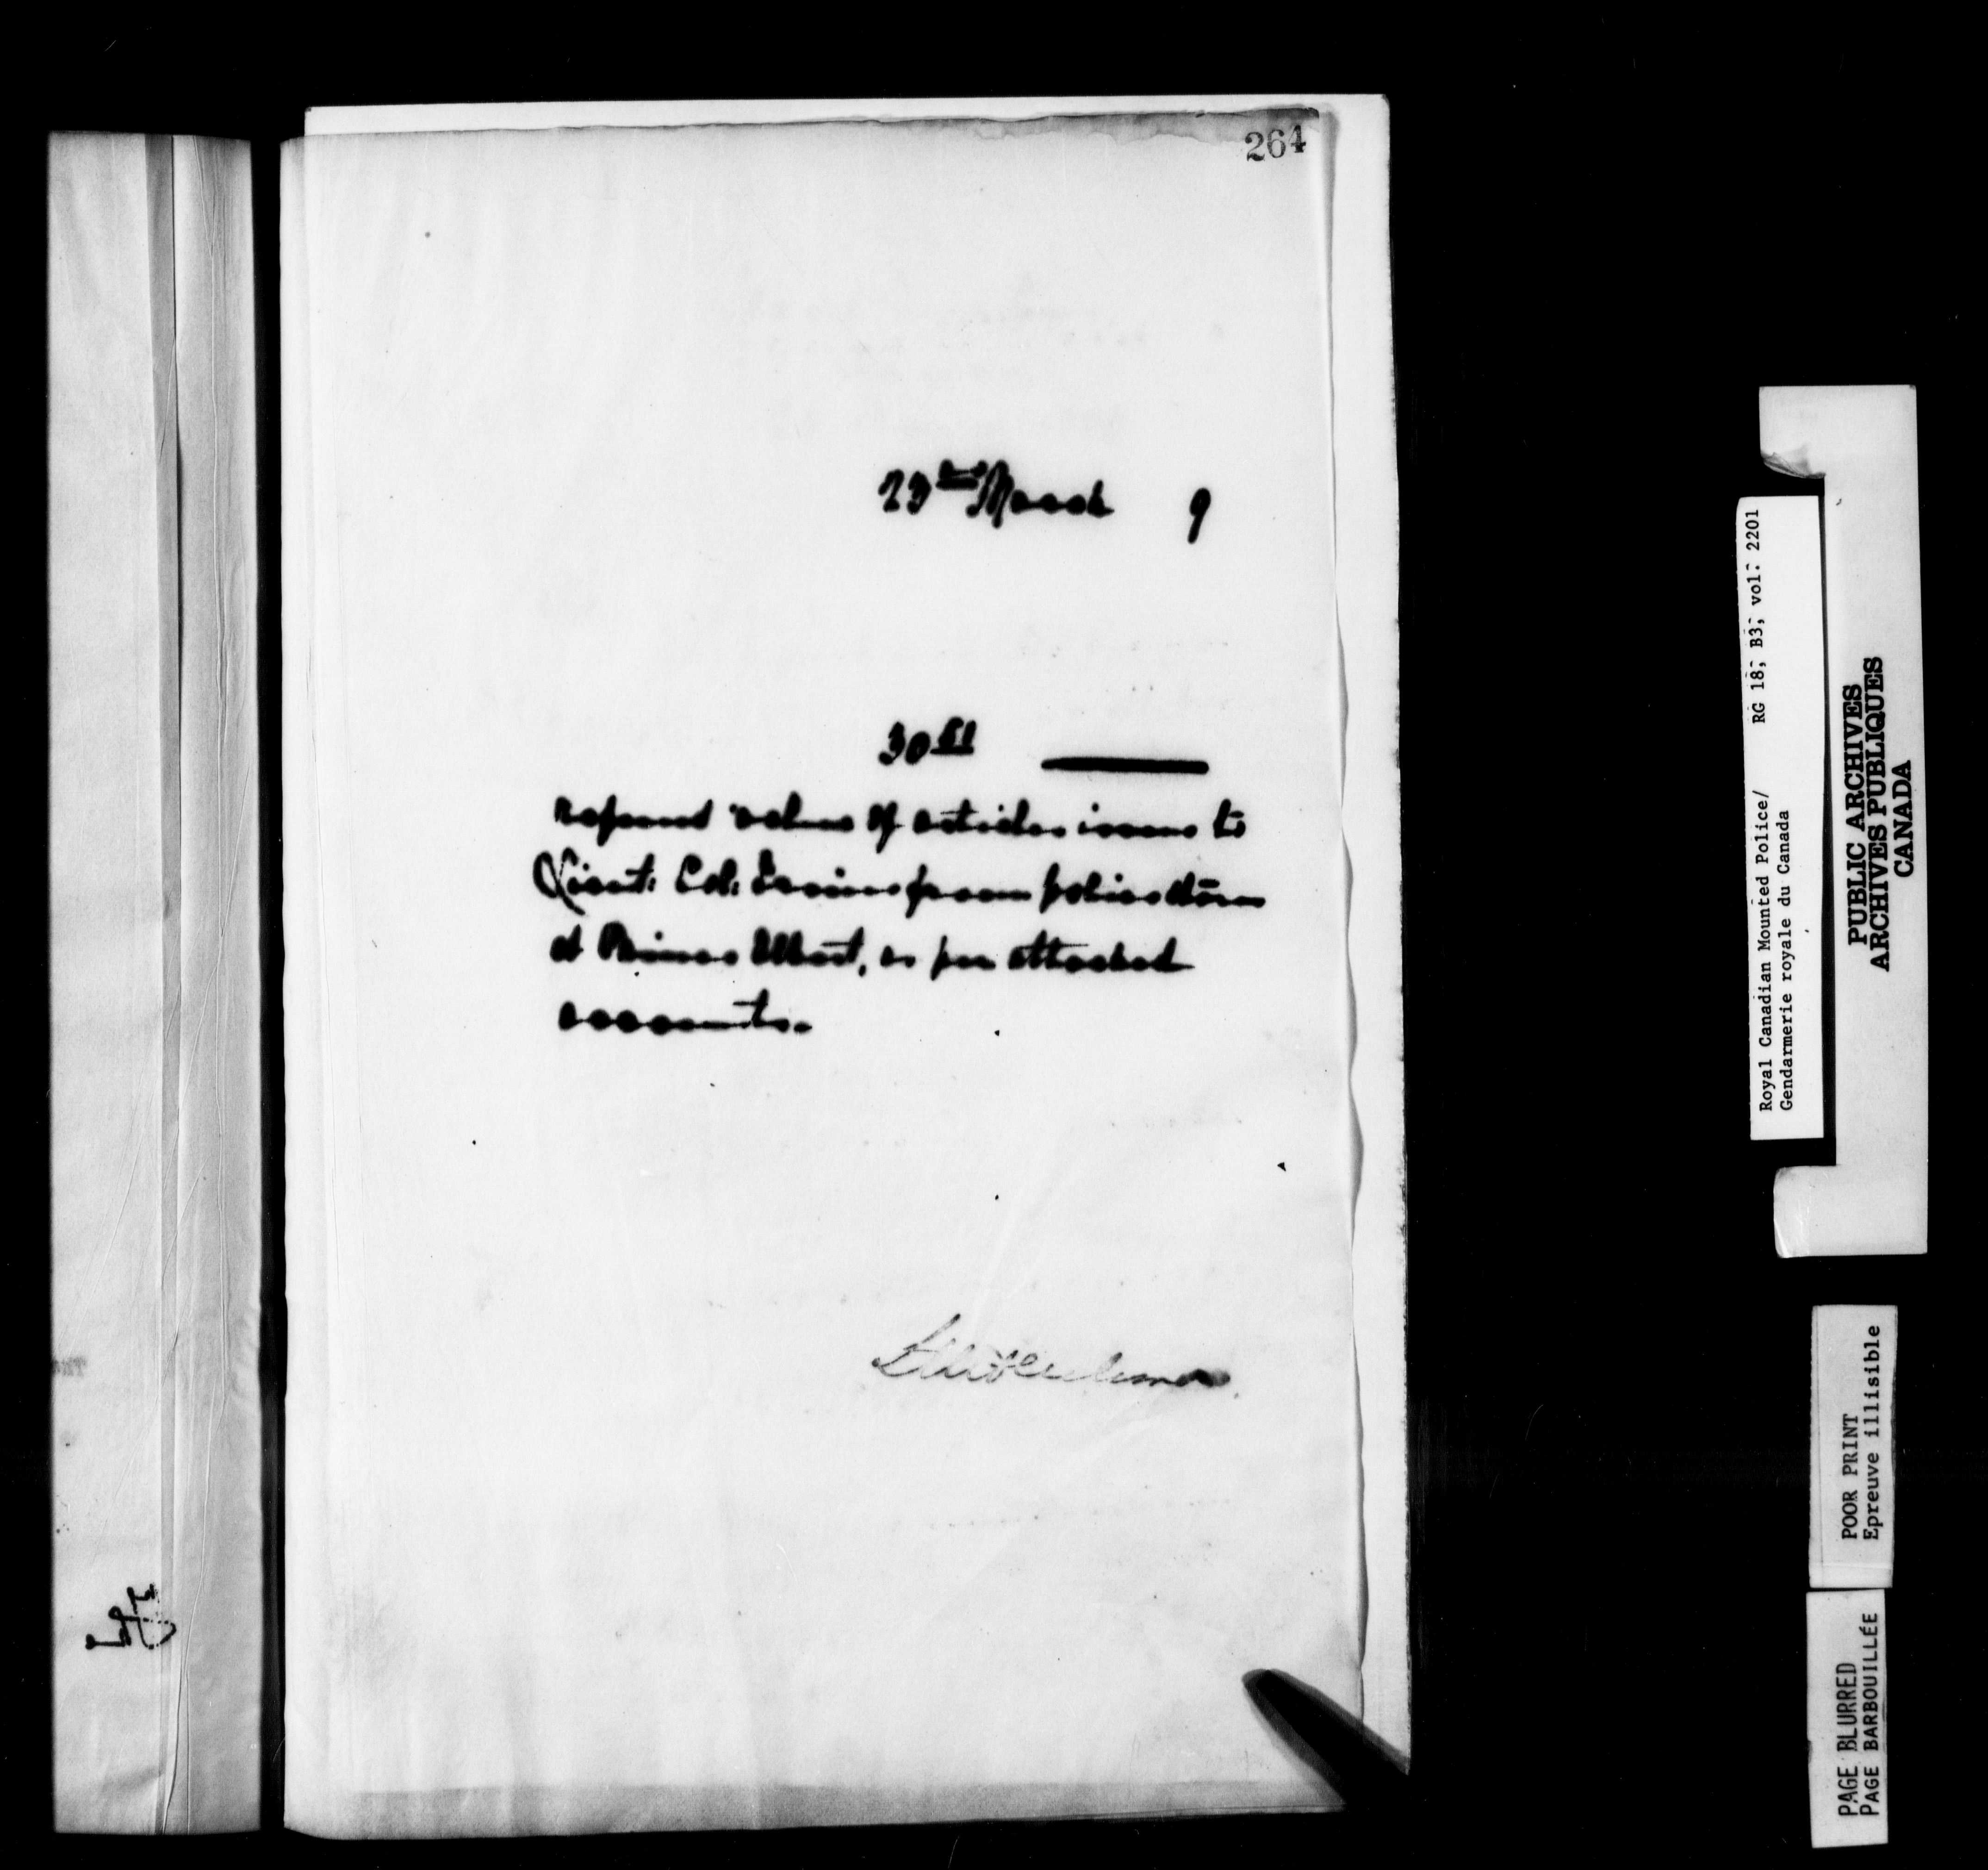 264
23rd March 9
30
refund value of articles issued to
Lieut: Col: from police stores
at Prince Albert, as per attached
accounts.
Royal Canadian Mounted Police/ RG 18, B3, vol: 2201
Gendarmerie royale du Canada
PUBLIC ARCHIVES
ARCHIVES PUBLIQUES
CANADA
POOR PRINT
Epreuve illisible
PAGE BLURRED
PAGE BARBOUILLÉE